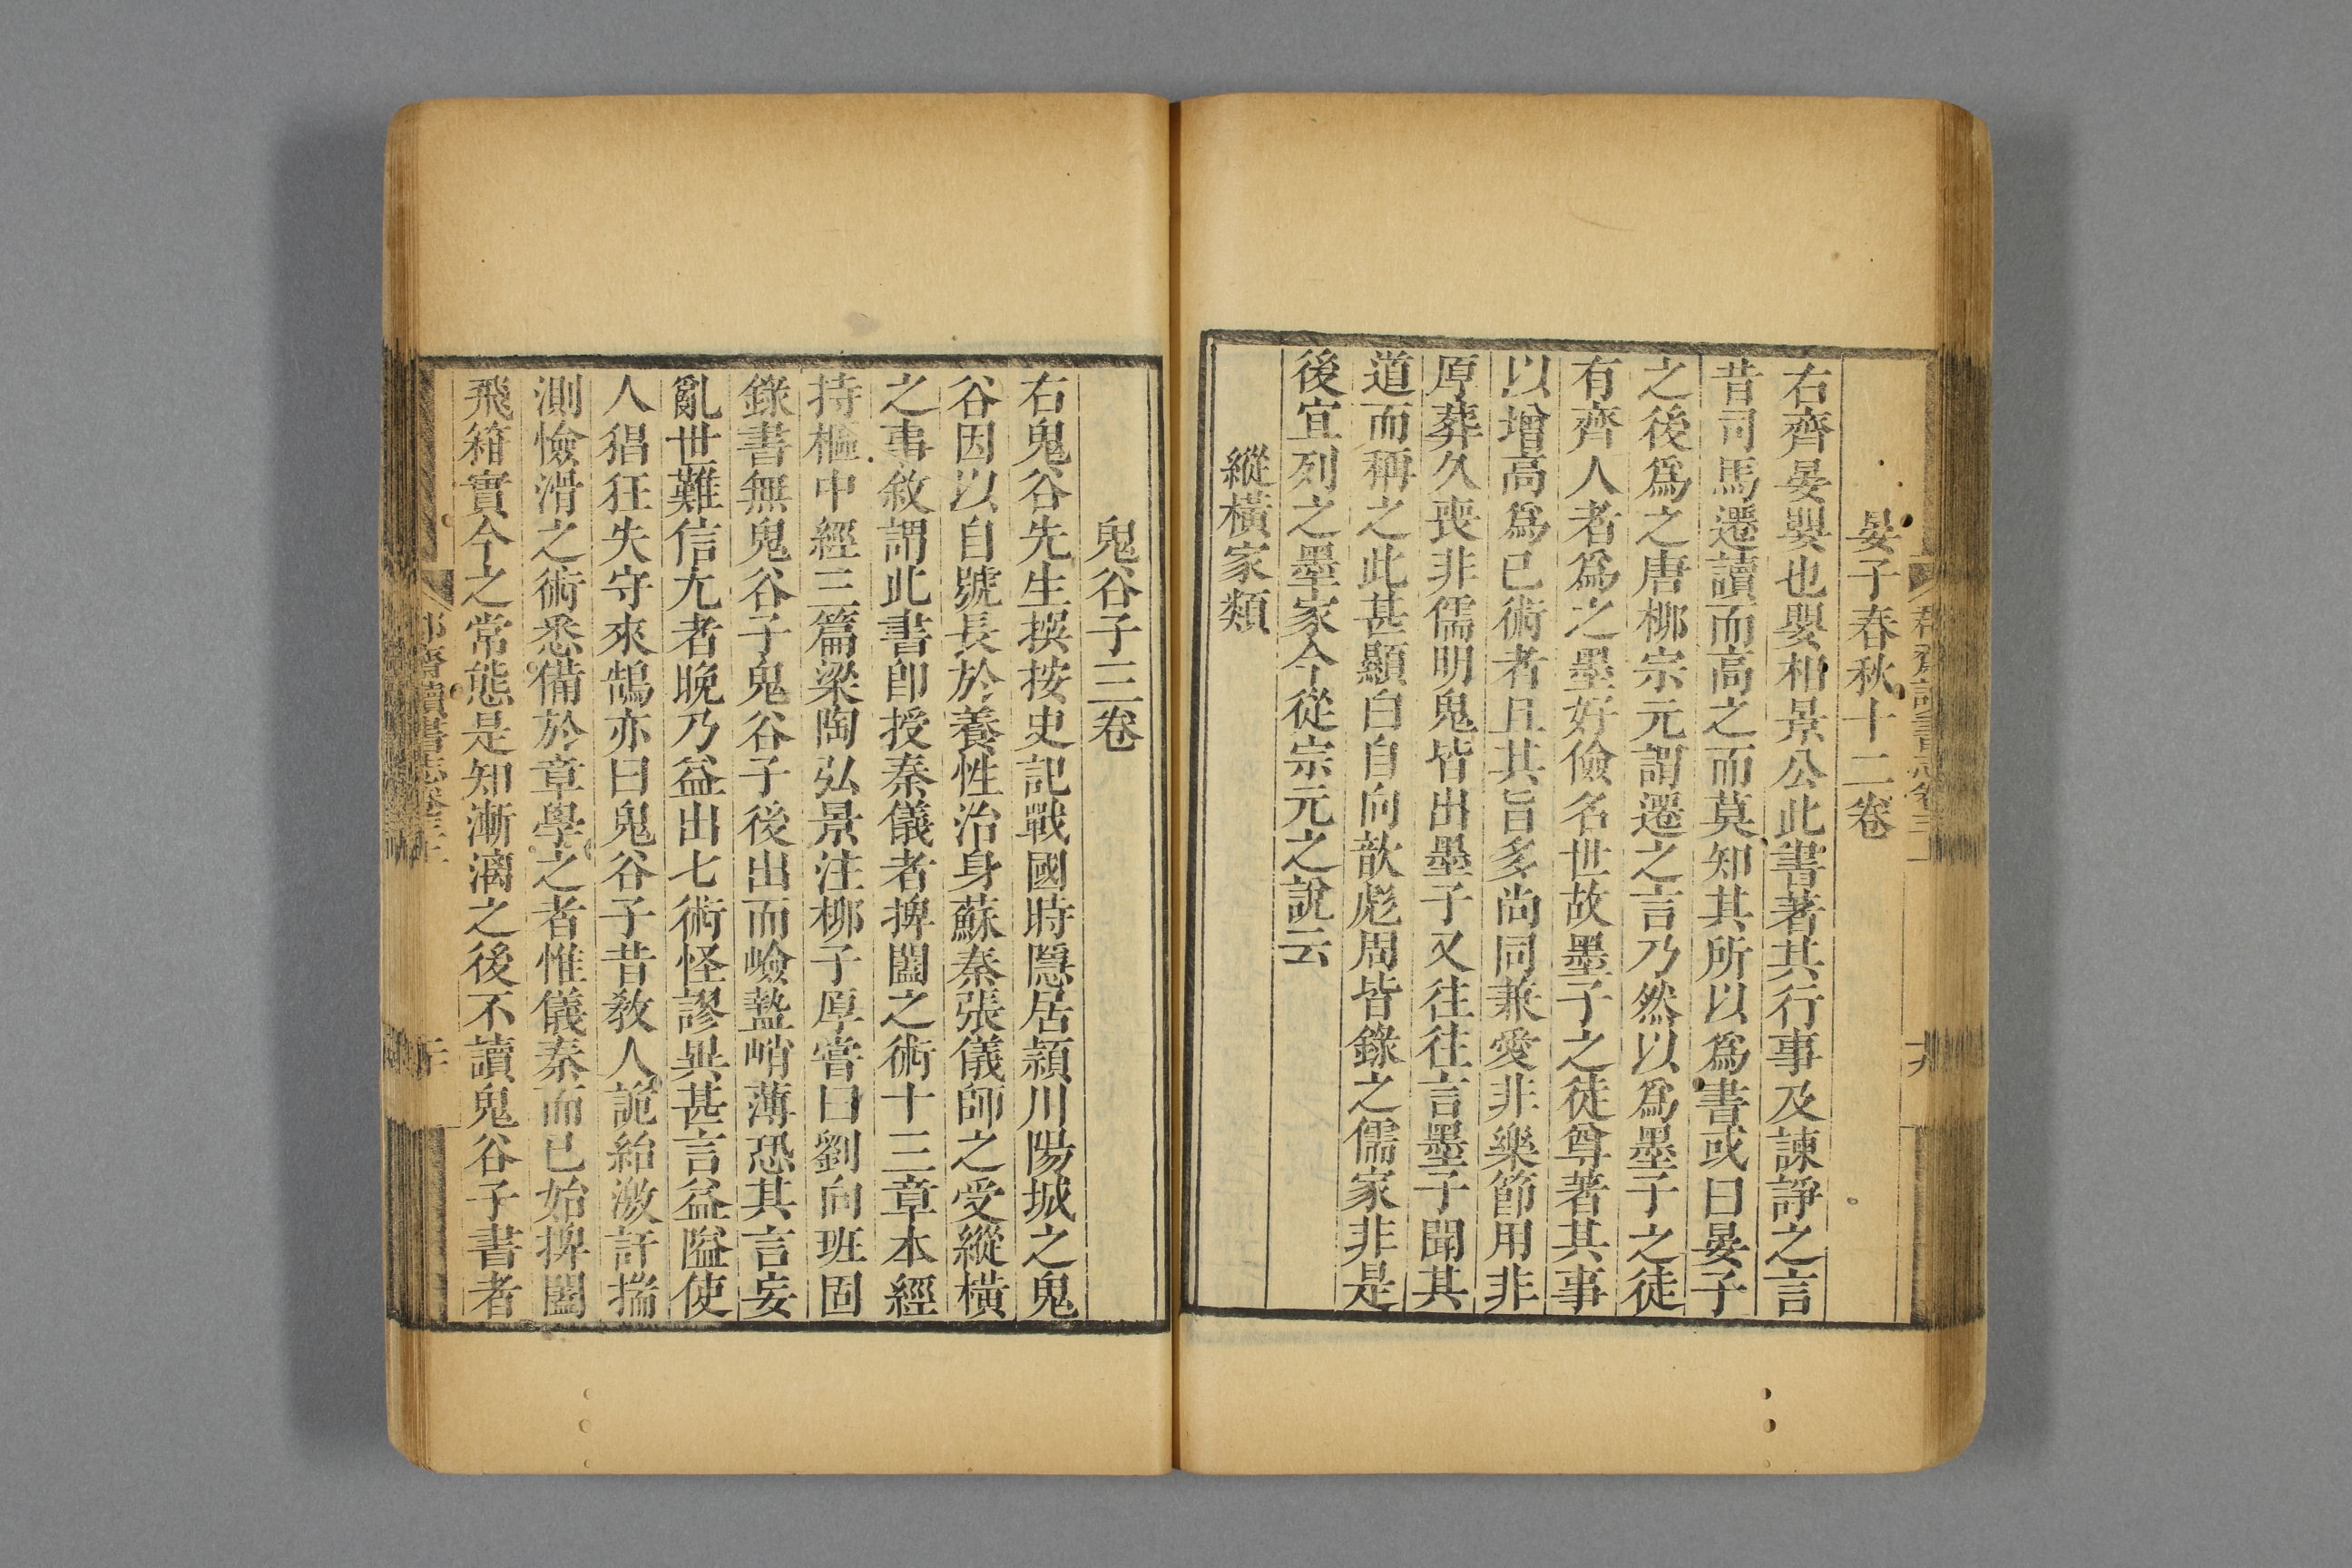 晏子春秋十二卷
右齊晏嬰也嬰相景公此書著其行事及諫諍之言
昔司馬遷讀而高之而莫知其所以爲書或曰晏子
之後爲之唐柳宗元謂遷之言乃然以爲墨子之徒
有齊人者爲之墨好儉名世故墨子之徒尊著其事
以增高爲己術者且其旨多尚同兼愛非樂節用非
厚葬久喪非儒明鬼皆出墨子又往往言墨子聞其
道而稱之此甚顯白自向歆彪固皆錄之儒家非是
後宜列之墨家今從宗元之說云
縱橫家類
鬼谷子三卷
右鬼谷先生撰按史記戰國時隱居潁川陽城之鬼
谷因以自號長於養性治身蘇秦張儀師之受縱橫
之事敘謂此書卽授秦儀者捭闔之術十三章本經
持樞中經三篇梁陶弘景注柳子厚嘗曰劉向班固
錄書無鬼谷子鬼谷子後出而嶮盭峭薄恐其言妄
亂世難信尤者晚乃益出七術怪謬異甚言益隘使
人猖狂失守來鵠亦曰鬼谷子昔敎人詭紿激訐揣
測憸滑之術悉備於章學之者惟儀秦而已始捭闔
飛箝實今之常態是知漸漓之後不讀鬼谷子書者